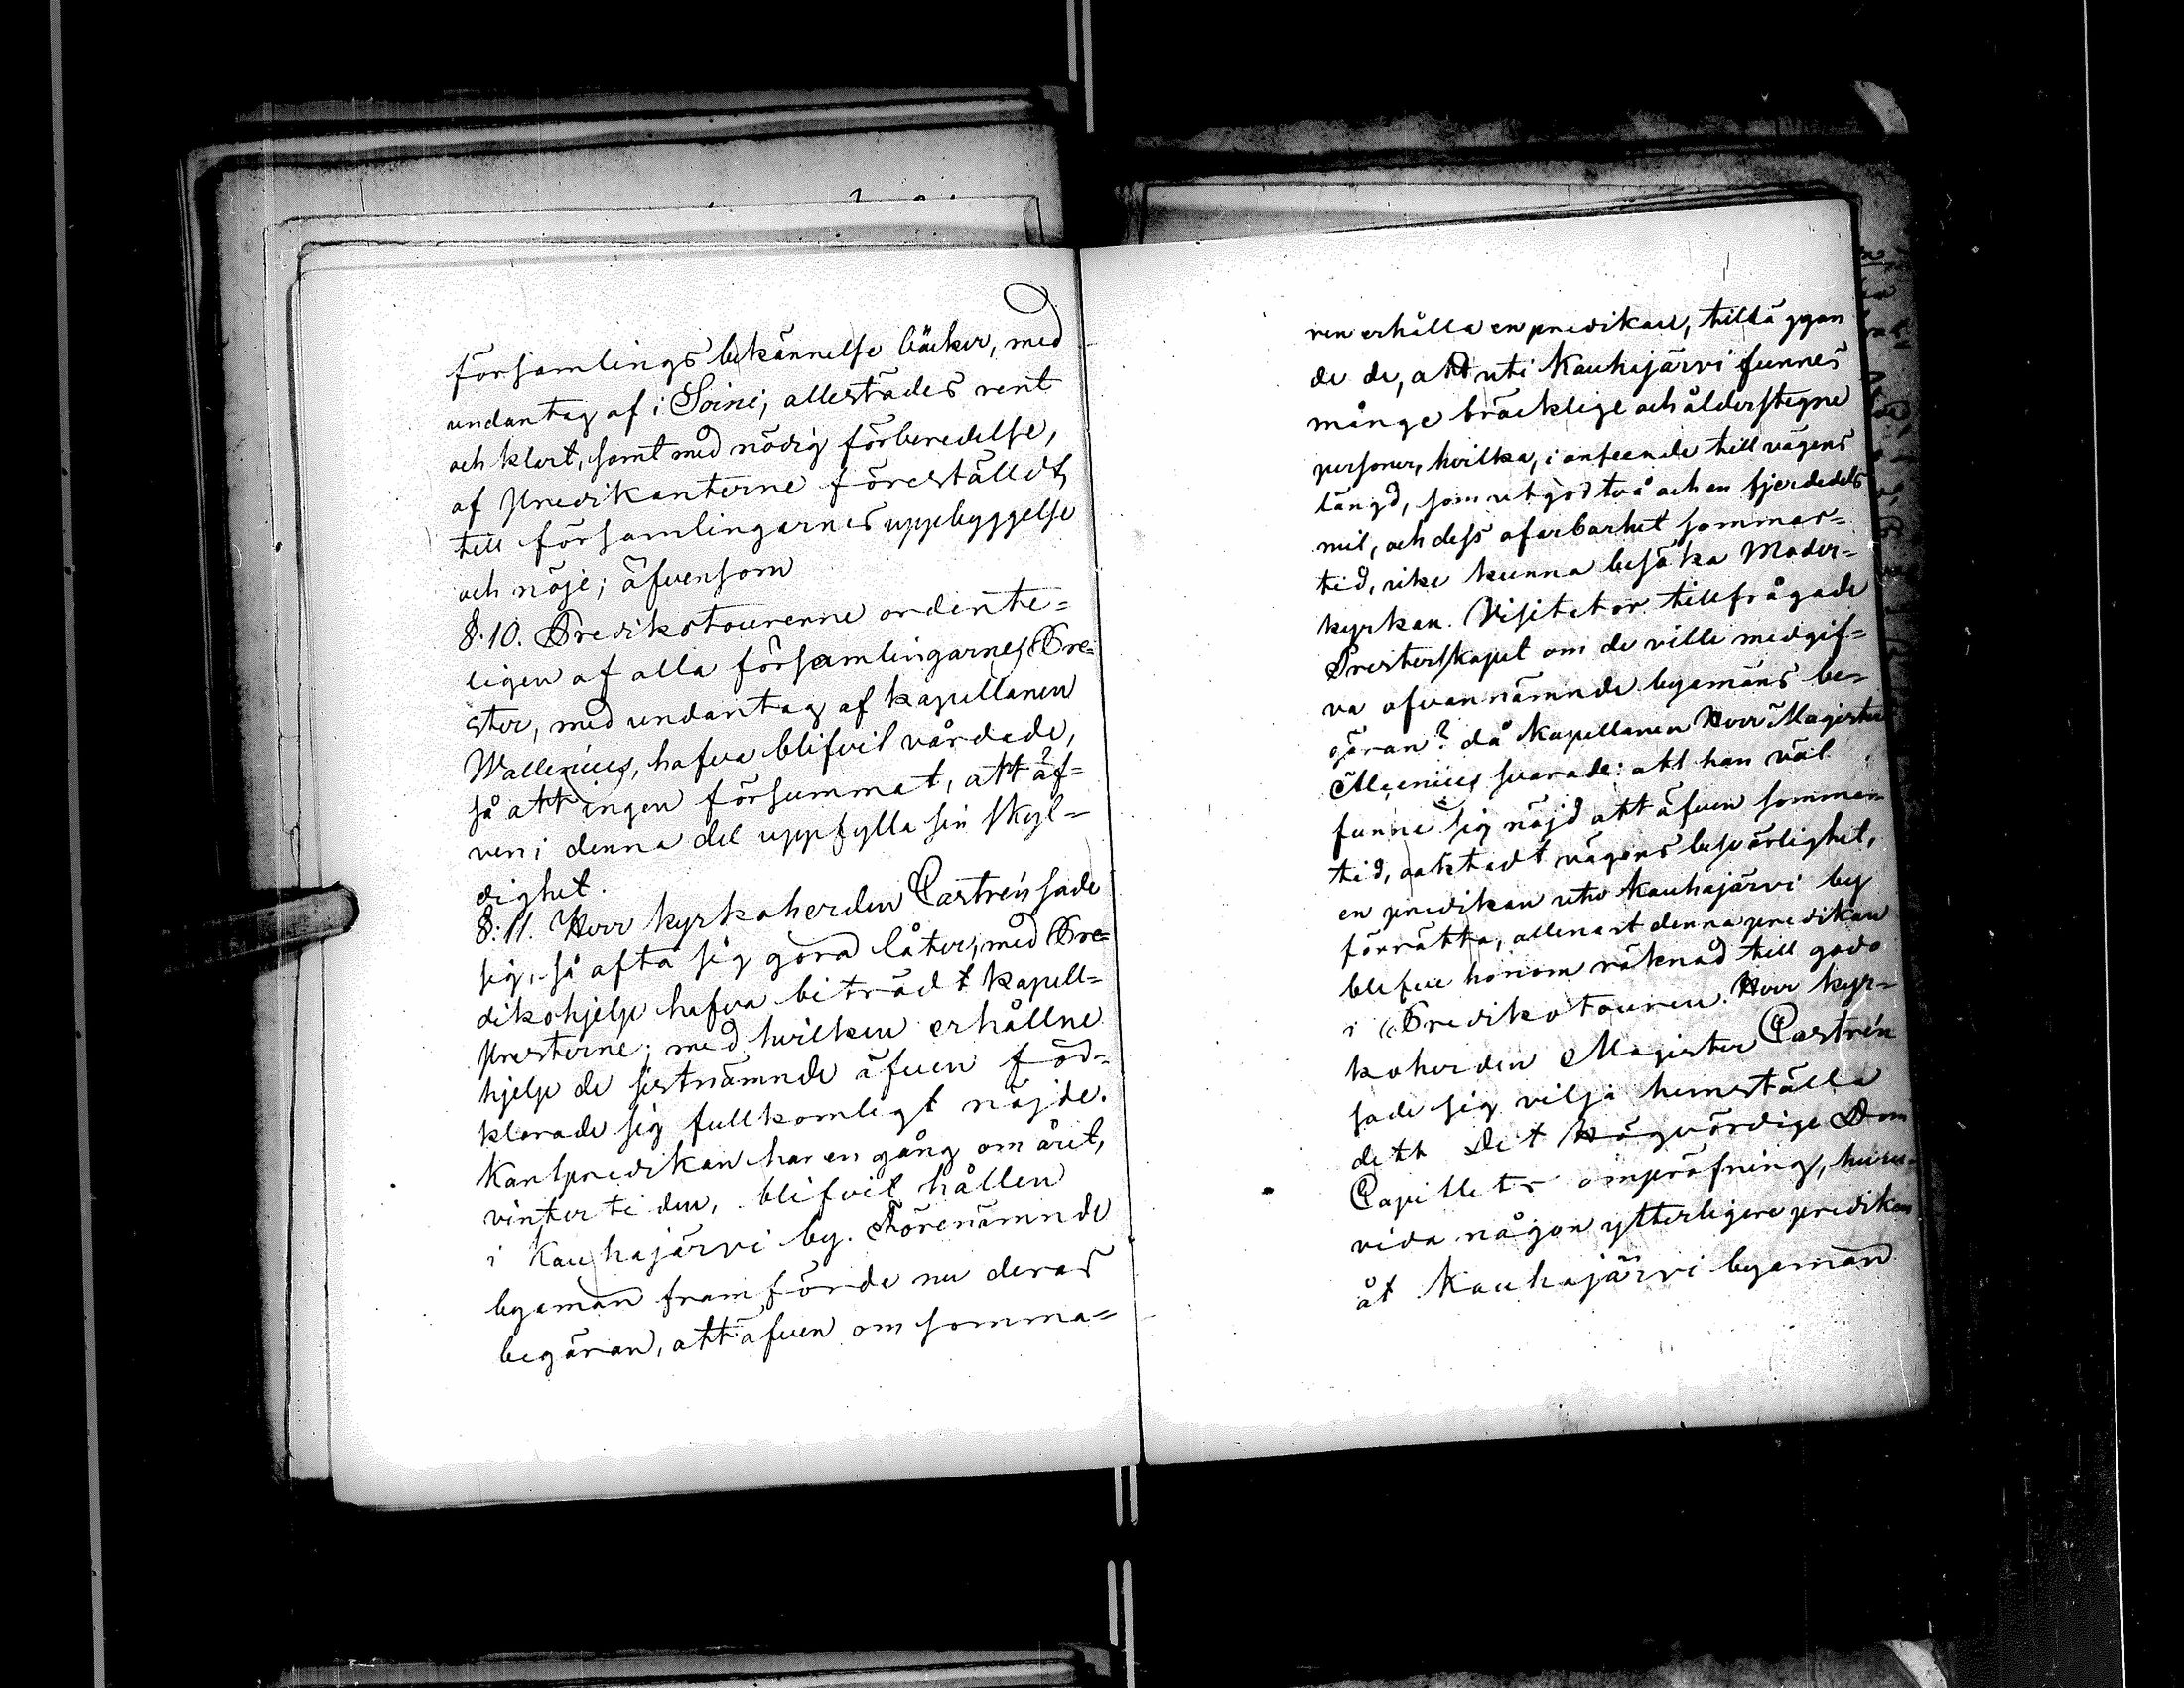 församlings bekännelse böcker, med
undantag af i Soini, allestädes rent
och klart, samt med nödig förberedelse,
af Predikanterne föreställdt
till församlingarnes uppebyggelse
och nöje; äfvensom
§:10. Predikotourerne ordente=
ligen af alla församlingarnes Pre=
ster, med undantag af kapellanen
Wallenius, hafva blifvit vårdade,
så att ingen försummat, att äf=
ven i denna del uppfylla sin skyl=
dighet.
§:11. Herr kyrkoherden Castrén sade
sig, så ofta sig göra låter, med Pre=
dikohjelp hafva biträdt kapell=
presterne; med hvilken erhållne
hjelp de sistnämnde äfven föd=
klarade sig fullkomligt nöjde.
Kantpredikan har en gång om året,
vinter tiden, blifvit hållen
i Kauhajärvi by. Förenämnde
byamän framförde nu deras
begäran, att äfven om somma=
ren erhålla en predikan, tillä ggan
de de, att uti Kauhajärvi funnes
månge bräcklige och ålderstegne
personer, hvilka, i anseende till vägens
längd, som utgör två och en fjerdedels
mil, och dess ofarbarhet sommar=
tid, icke kunna besöka Moder=
kyrkan. Visitator tillfrågade
Presterskapet om de ville medgif=
va ofvannämnde byamäns be=
gäran? då Kapellanen Herr Magister
svarade: att han väl
funne sig nöjd att äfven sommar
tid, oaktadt vägens besvärlighet,
en predikan uti Kauhajärvi by
förrätta, allenast denna predikan
blefve honom räknad till godo
i Predikotouren. Herr kyr=
koherden Magister Castrén
sade sig vilja hemställa
dett Det Högvördige Dom
Capitlets ompröfning, huru=
vida någon ytterligere predikan
åt Kauhajärvi byamän